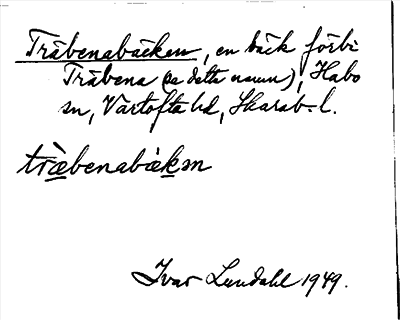 Träbenabäcken, en bäck förbi
Träbena (se detta namn), Habo
sn, Vartofta hd, Skarab. l.
trä̀benabäkən
Ivar Lundahl 1949.